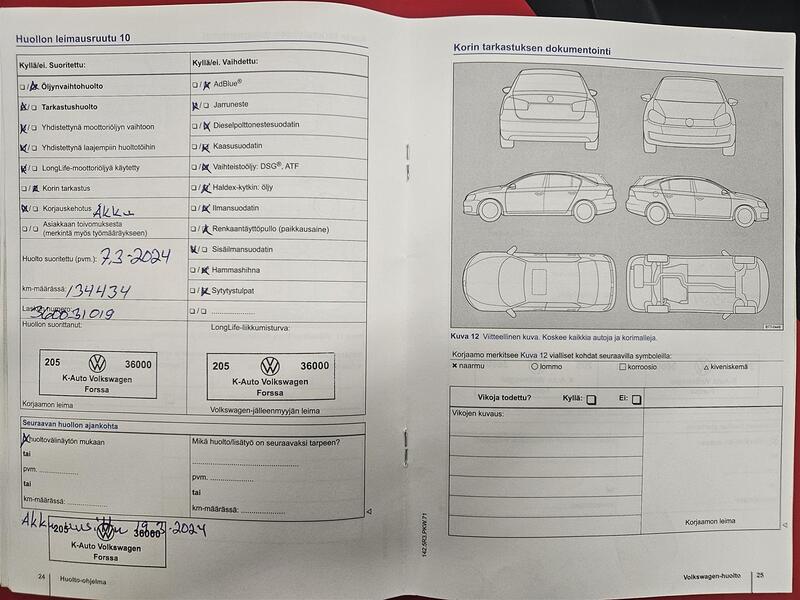 Huollon leimausruutu 10
Kyllä/ei. Suoritettu:
Öljynvaihtohuolto
Tarkastushuolto
Yhdistettynä moottoriöljyn vaihtoon
Yhdistettynä laajempiin huoltotöihin
LongLife-moottoriöljyä käytetty
Korin tarkastus
Korjauskehotus Akku
Asiakkaan toivomuksesta
(merkintä myös työmääräykseen)
Huolto suoritettu (pvm.): 7.3-2024
km-määrässä: 134434
Laskun numero:
360031019
Huollon suorittanut:
205 36000
K-Auto Volkswagen
Forssa
Korjaamon leima
Kyllä/ei. Vaihdettu:
AdBlue®
Jarruneste
Dieselpolttonestesuodatin
Kaasusuodatin
Vaihteistoöljy: DSG®, ATF
Haldex-kytkin: öljy
Ilmansuodatin
Renkaantäyttöpullo (paikkausaine)
Sisäilmansuodatin
Hammashihna
Sytytystulpat
LongLife-liikkumisturva:
205 36000
K-Auto Volkswagen
Forssa
Volkswagen-jälleenmyyjän leima
Seuraavan huollon ajankohta
huoltovälinäytön mukaan
tai
pvm.
tai
km-määrässä:
Mikä huolto/lisätyö on seuraavaksi tarpeen?
pvm.
tai
km-määrässä:
Akku uusittu 19.3-2024
205 36000
K-Auto Volkswagen
Forssa
24 Huolto-ohjelma
Korin tarkastuksen dokumentointi
Kuva 12 Viitteellinen kuva. Koskee kaikkia autoja ja korimalleja.
Korjaamo merkitsee Kuva 12 vialliset kohdat seuraavilla symboleilla:
naarmu lommo korroosio kiveniskemä
Vikoja todettu? Kyllä: Ei:
Vikojen kuvaus:
Korjaamon leima
142.5R3.PKW.71
Volkswagen-huolto 25